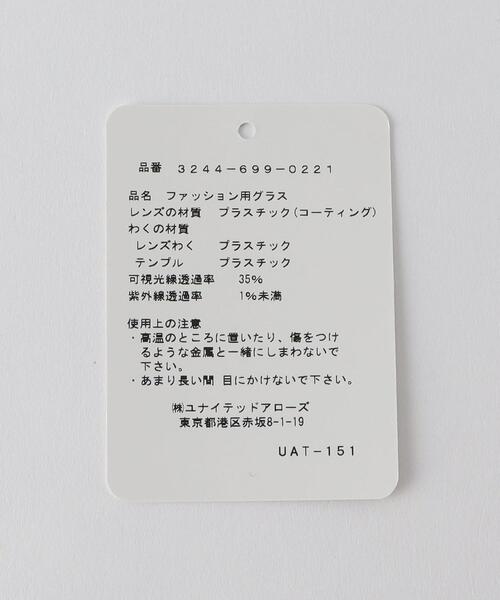 品番 3244-699-0221
品名 ファッション用グラス
レンズの材質 プラスチック(コーティング)
わくの材質
レンズわく プラスチック
テンプル プラスチック
可視光線透過率 35%
紫外線透過率 1%未満
使用上の注意
・高温のところに置いたり、傷をつけ
るような金属と一緒にしまわないで
下さい。
・あまり長い間 目にかけないで下さい。
㈱ユナイテッドアローズ
東京都港区赤坂8-1-19
UAT-151